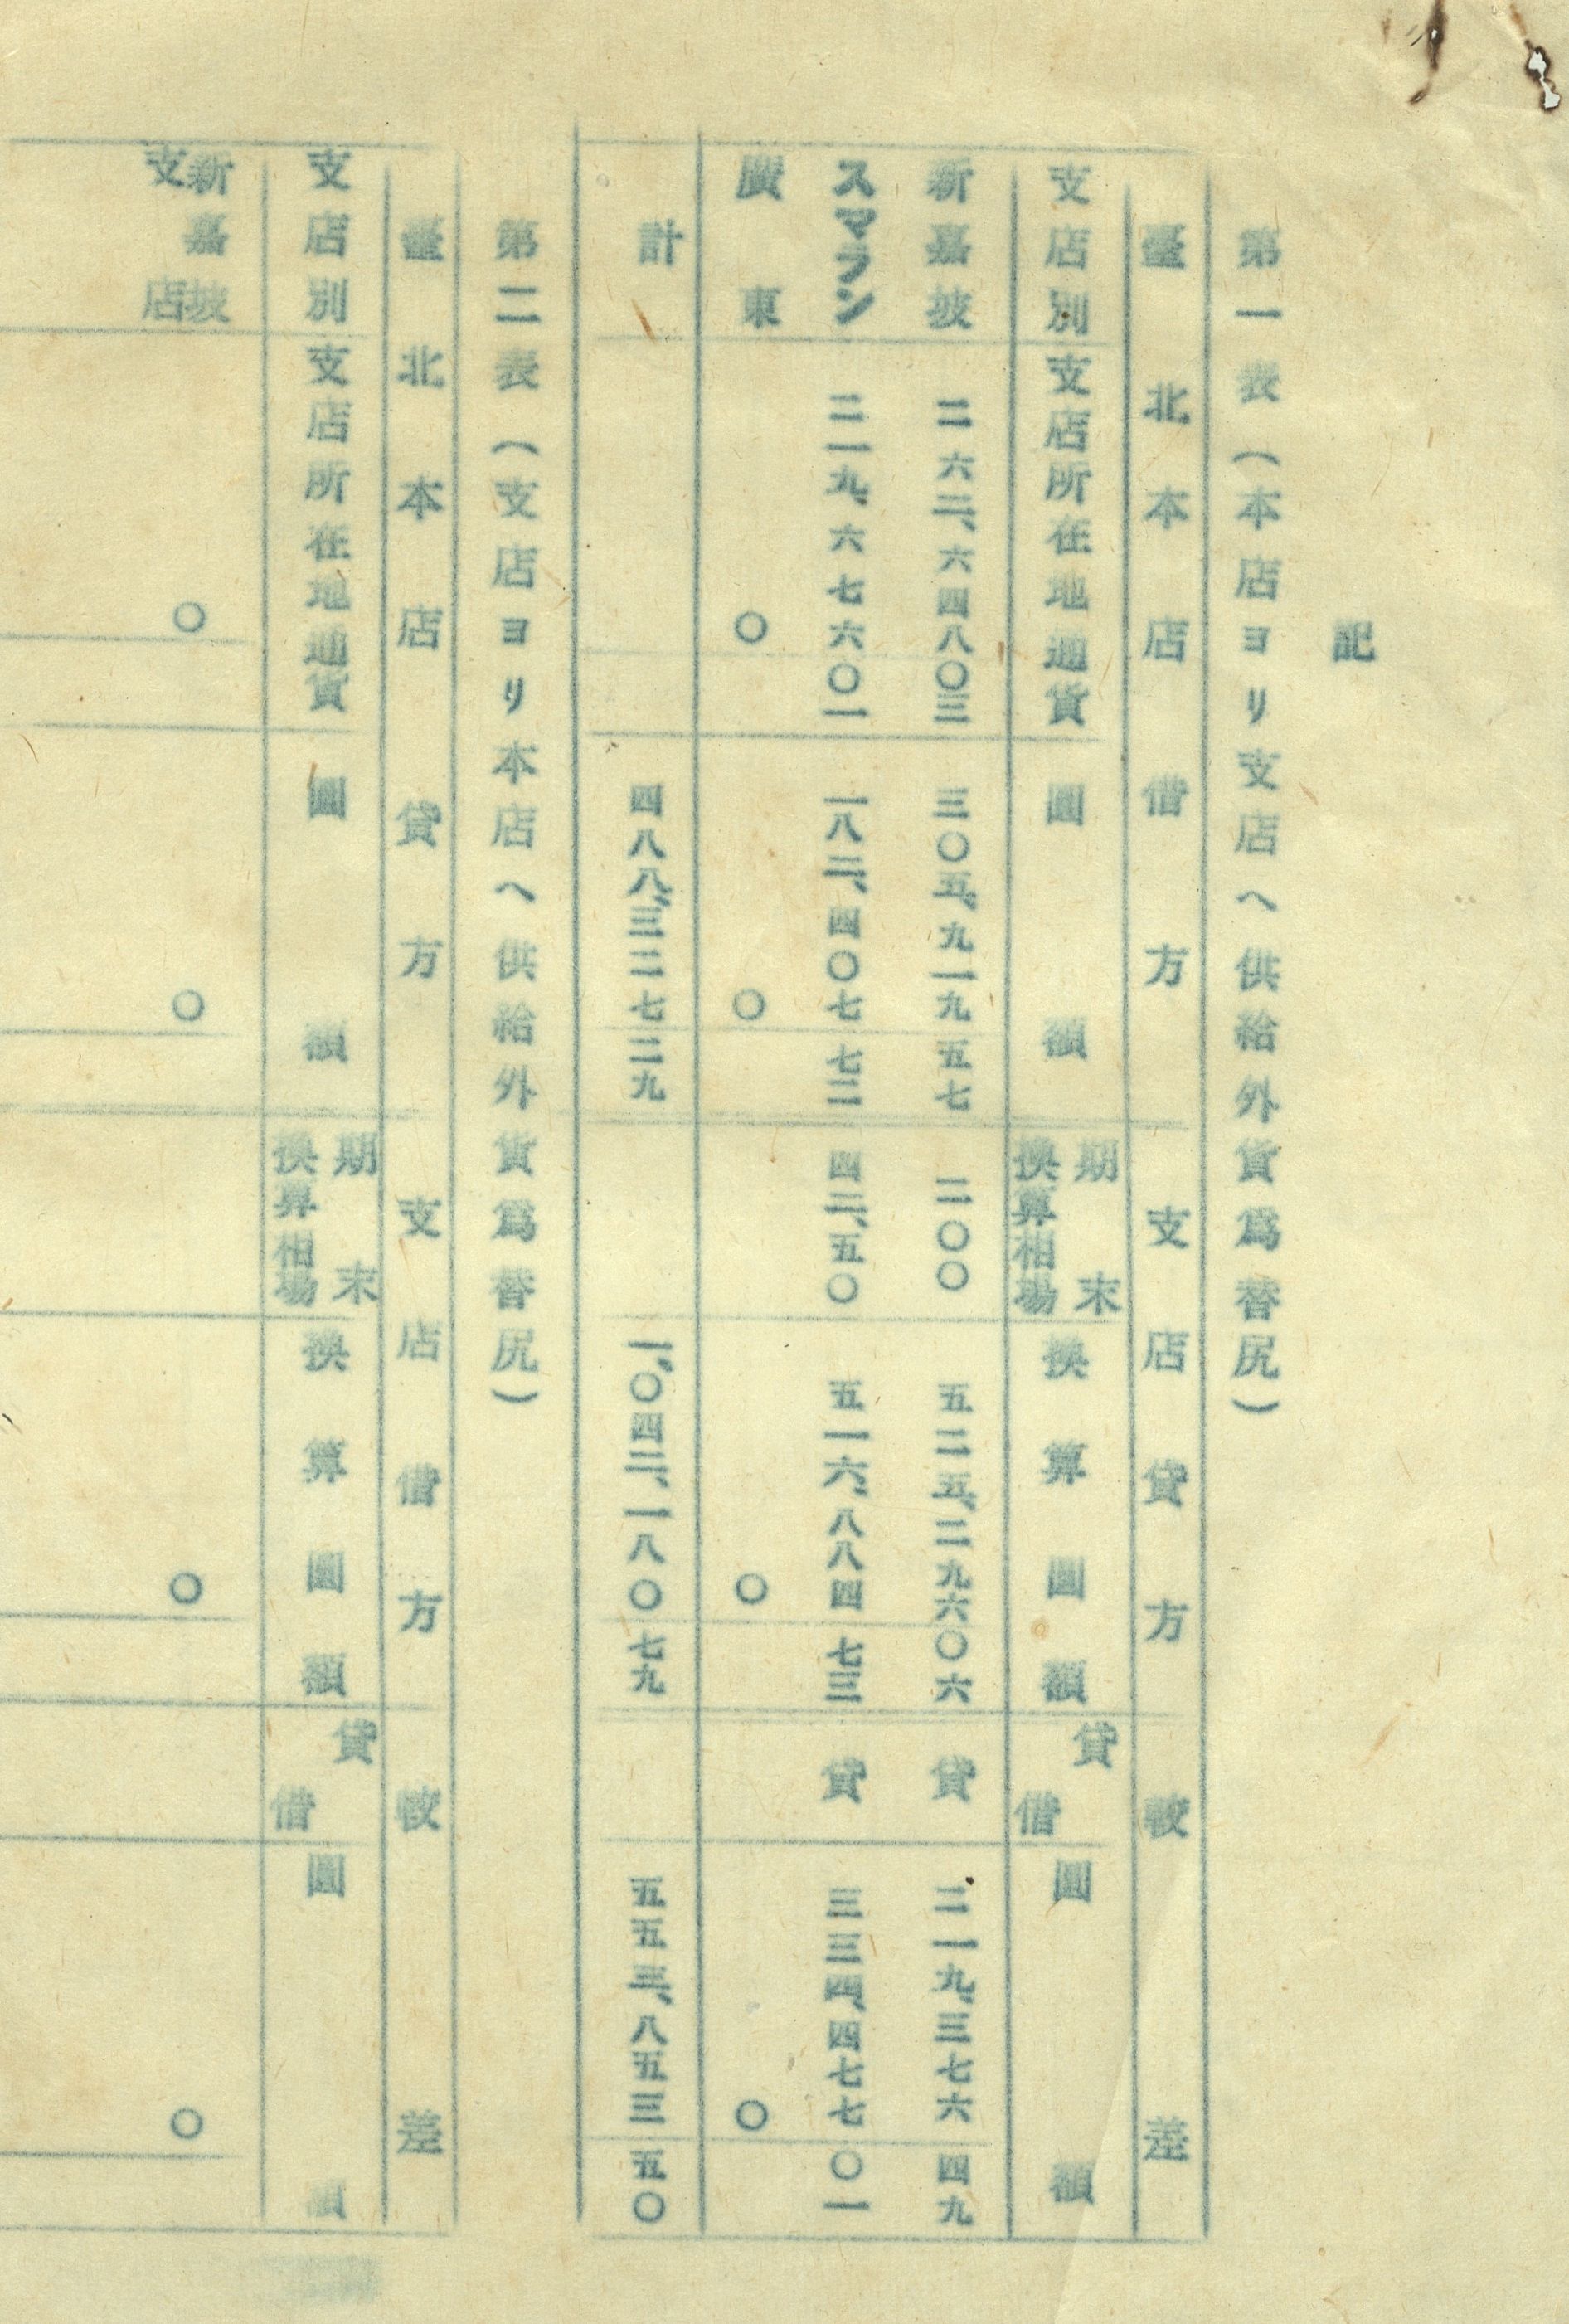 記
第一表(本店ヨリ支店ヘ供給外貨爲替尻)
臺北本店借方 支店貸方 較差
支店別 支店所在地通貨 圓額 期末換算相場 換算圓額 貸借 圓額
新嘉坡 二六二、六四八〇三 三〇五、九一九五七 二〇〇 五二五、二九六〇六 貸 二一九、三七六四九
スマラン 二一九、六七六〇一 一八二、四〇七七二 四二、五〇 五一六、八八四七三 貸 三三四、四七七〇一
廣東 〇 〇 〇 〇
計 四八八、三二七二九 一、〇四二、一八〇七九 五五三、八五三五〇
第二表(支店ヨリ本店ヘ供給外貨爲替尻)
臺北本店貸方 支店借方 較差
支店別 支店所在地通貨 圓額 期末換算相場 換算圓額 貸借 圓額
新嘉坡支店 〇 〇 〇 〇